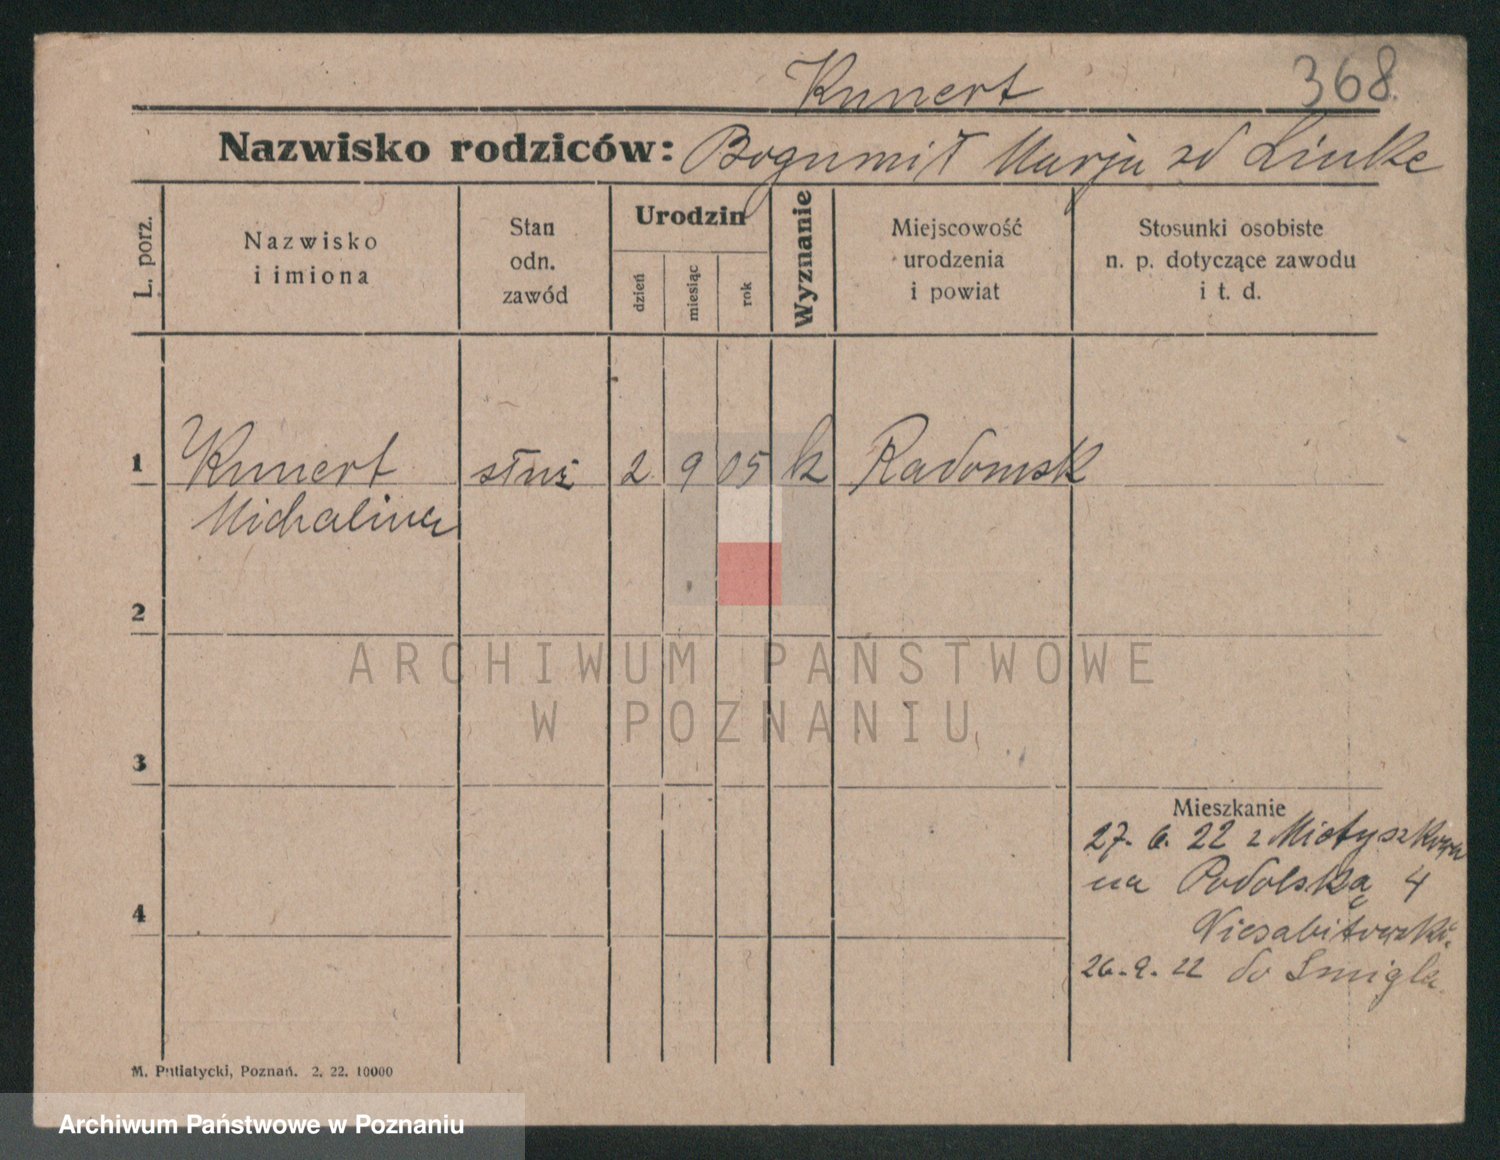 Kunert 368.
Nazwisko rodziców: Bogumił Marja zd Linke
L. porz.
Nazwisko
i imiona
Stan
odn.
zawód
Urodzin
dzień
miesiąc
rok
Wyznanie
Miejscowość
urodzenia
i powiat
Stosunki osobiste
n. p. dotyczące zawodu
i t. d.
1 Kunert służ 2 9 05 k Radomsk
Michalina
2
ARCHIWUM PAŃSTWOWE
W POZNANIU
3
Mieszkanie
27. 6. 22 z
na Podolską 4
4
Niesabitowski.
26. 9. 22 do Smigla.
M. Putiatycki, Poznań. 2. 22. 10000
Archiwum Państwowe w Poznaniu